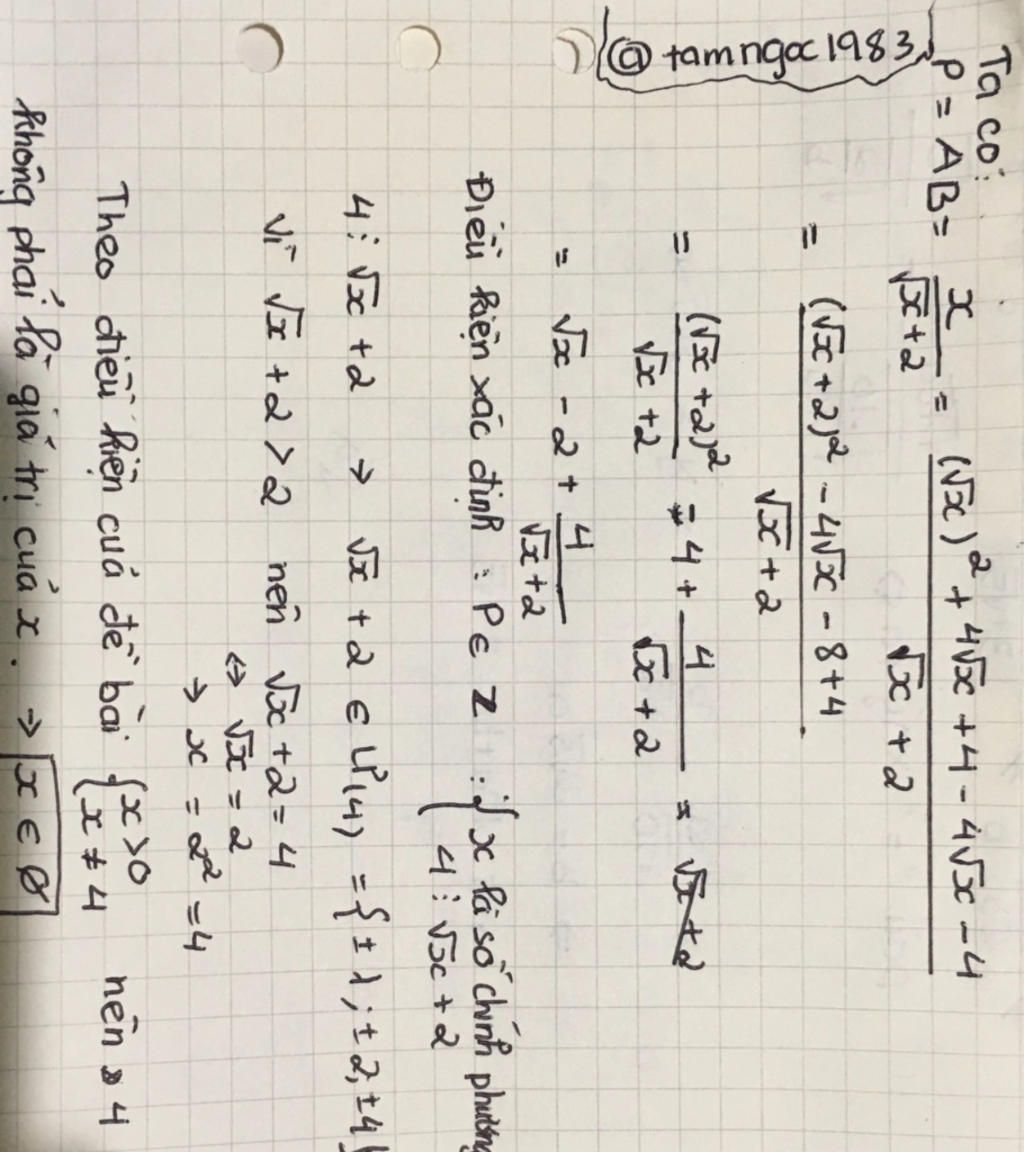 @tamngoc1983
Ta có:
P = AB = x/(√x+2) = ((√x)² + 4√x + 4 - 4√x - 4)/(√x + 2)
= ((√x + 2)² - 4√x - 8 + 4)/(√x + 2)
= (√x + 2)²/(√x + 2) - 4 + 4/(√x + 2) =
= √x - 2 + 4/(√x+2)
Điều kiện xác định : P ∈ Z : { x là số chính phương
4 ⋮ √x + 2
4 ⋮ √x + 2 → √x + 2 ∈ Ư(4) = {±1; ±2; ±4}
Vì √x + 2 > 2 nên √x + 2 = 4
⇔ √x = 2
→ x = 2² = 4
Theo điều kiện của đề bài { x > 0
x ≠ 4 nên 4
không phải là giá trị của x. → x ∈ ∅